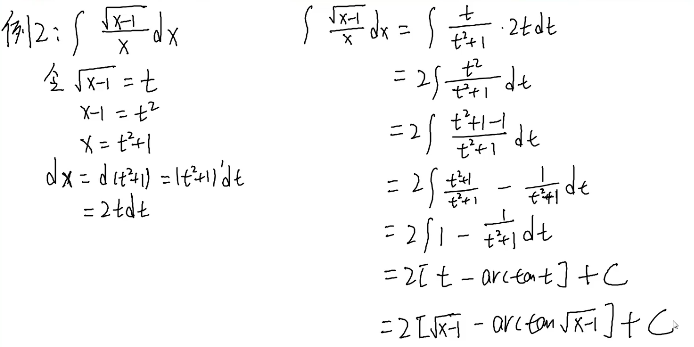 例12: ∫ √(x-1)/x dx
令 √(x-1) = t
x-1 = t²
x = t²+1
dx = d(t²+1) = (t²+1)'dt
= 2tdt
∫ √(x-1)/x dx = ∫ t/(t²+1) · 2tdt
= 2∫ t²/(t²+1) dt
= 2∫ (t²+1-1)/(t²+1) dt
= 2∫ (t²+1)/(t²+1) - 1/(t²+1) dt
= 2∫ 1 - 1/(t²+1) dt
= 2[t - arctan t] + C
= 2[√(x-1) - arctan √(x-1)] + C